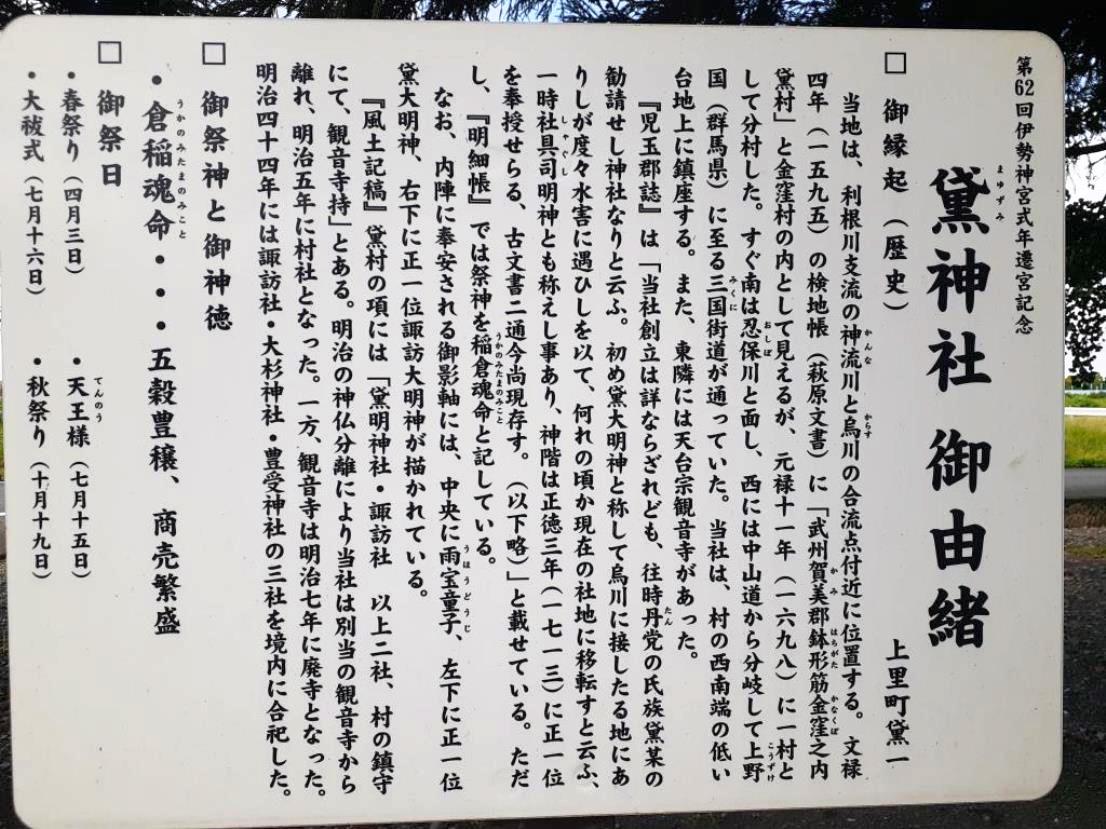 第62回伊勢神宮式年遷宮記念
黛神社 御由緒
まゆずみ
上里町黛一
□ 御縁起（歴史）
当地は、利根川支流の神流川と烏川の合流点付近に位置する。文禄
かんな からす
四年（一五九五）の検地帳（萩原文書）に「武州賀美郡鉢形筋金窪之内
かみ はちがた かなくぼ
黛村」と金窪村の内として見えるが、元禄十一年（一六九八）に一村と
して分村した。すぐ南は忍保川と面し、西には中山道から分岐して上野
おしぼ こうずけ
国（群馬県）に至る三国街道が通っていた。当社は、村の西南端の低い
みくに
台地上に鎮座する。また、東隣には天台宗観音寺があった。
『児玉郡誌』は「当社創立は詳ならざれども、往時丹党の氏族黛某の
たん
勧請せし神社なりと云ふ。初め黛大明神と称して烏川に接したる地にあ
りしが度々水害に遇ひしを以て、何れの頃か現在の社地に移転すと云ふ、
一時社具司明神とも称えし事あり、神階は正徳三年（一七一三）に正一位
しゃぐし
を奉授せらる、古文書二通今尚現存す。（以下略）」と載せている。ただ
し、『明細帳』では祭神を稲倉魂命と記している。
うかのみたまのみこと
なお、内陣に奉安される御影軸には、中央に雨宝童子、左下に正一位
うほうどうじ
黛大明神、右下に正一位諏訪大明神が描かれている。
『風土記稿』黛村の項には「黛明神社・諏訪社 以上二社、村の鎮守
にて、観音寺持」とある。明治の神仏分離により当社は別当の観音寺から
離れ、明治五年に村社となった。一方、観音寺は明治七年に廃寺となった。
明治四十四年には諏訪社・大杉神社・豊受神社の三社を境内に合祀した。
□ 御祭神と御神徳
・倉稲魂命・・・五穀豊穣、商売繁盛
うかのみたまのみこと
□ 御祭日
・春祭り（四月三日） ・天王様（七月十五日）
てんのう
・大祓式（七月十六日） ・秋祭り（十月十九日）